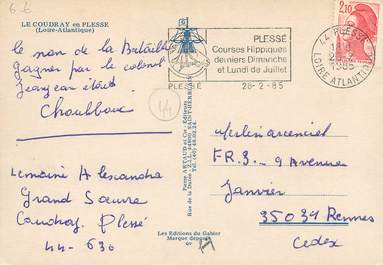 6-6
LE COUDRAY en PLESSE
(Loire-Atlantique)
le nom de la Bataille
gagner par le colonel
Jeanjean était
Choubboue
Lemoine Alexandra
Grand Soeuvre
Coudray Plessé
44-630
PLESSÉ
Courses Hippiques
derniers Dimanche
et Lundi de Juillet
PLESSÉ
28-2-85
44 PLESSE
1985
LOIRE ATLANTIQUE
2,10
44
Pierre ARTAUD et Cie - Editeurs
Merlin arcenciel
FR.3 - 9 Avenue
Janvier
35031 Rennes
Cedex
Les Editions du Gabier
Marque déposée